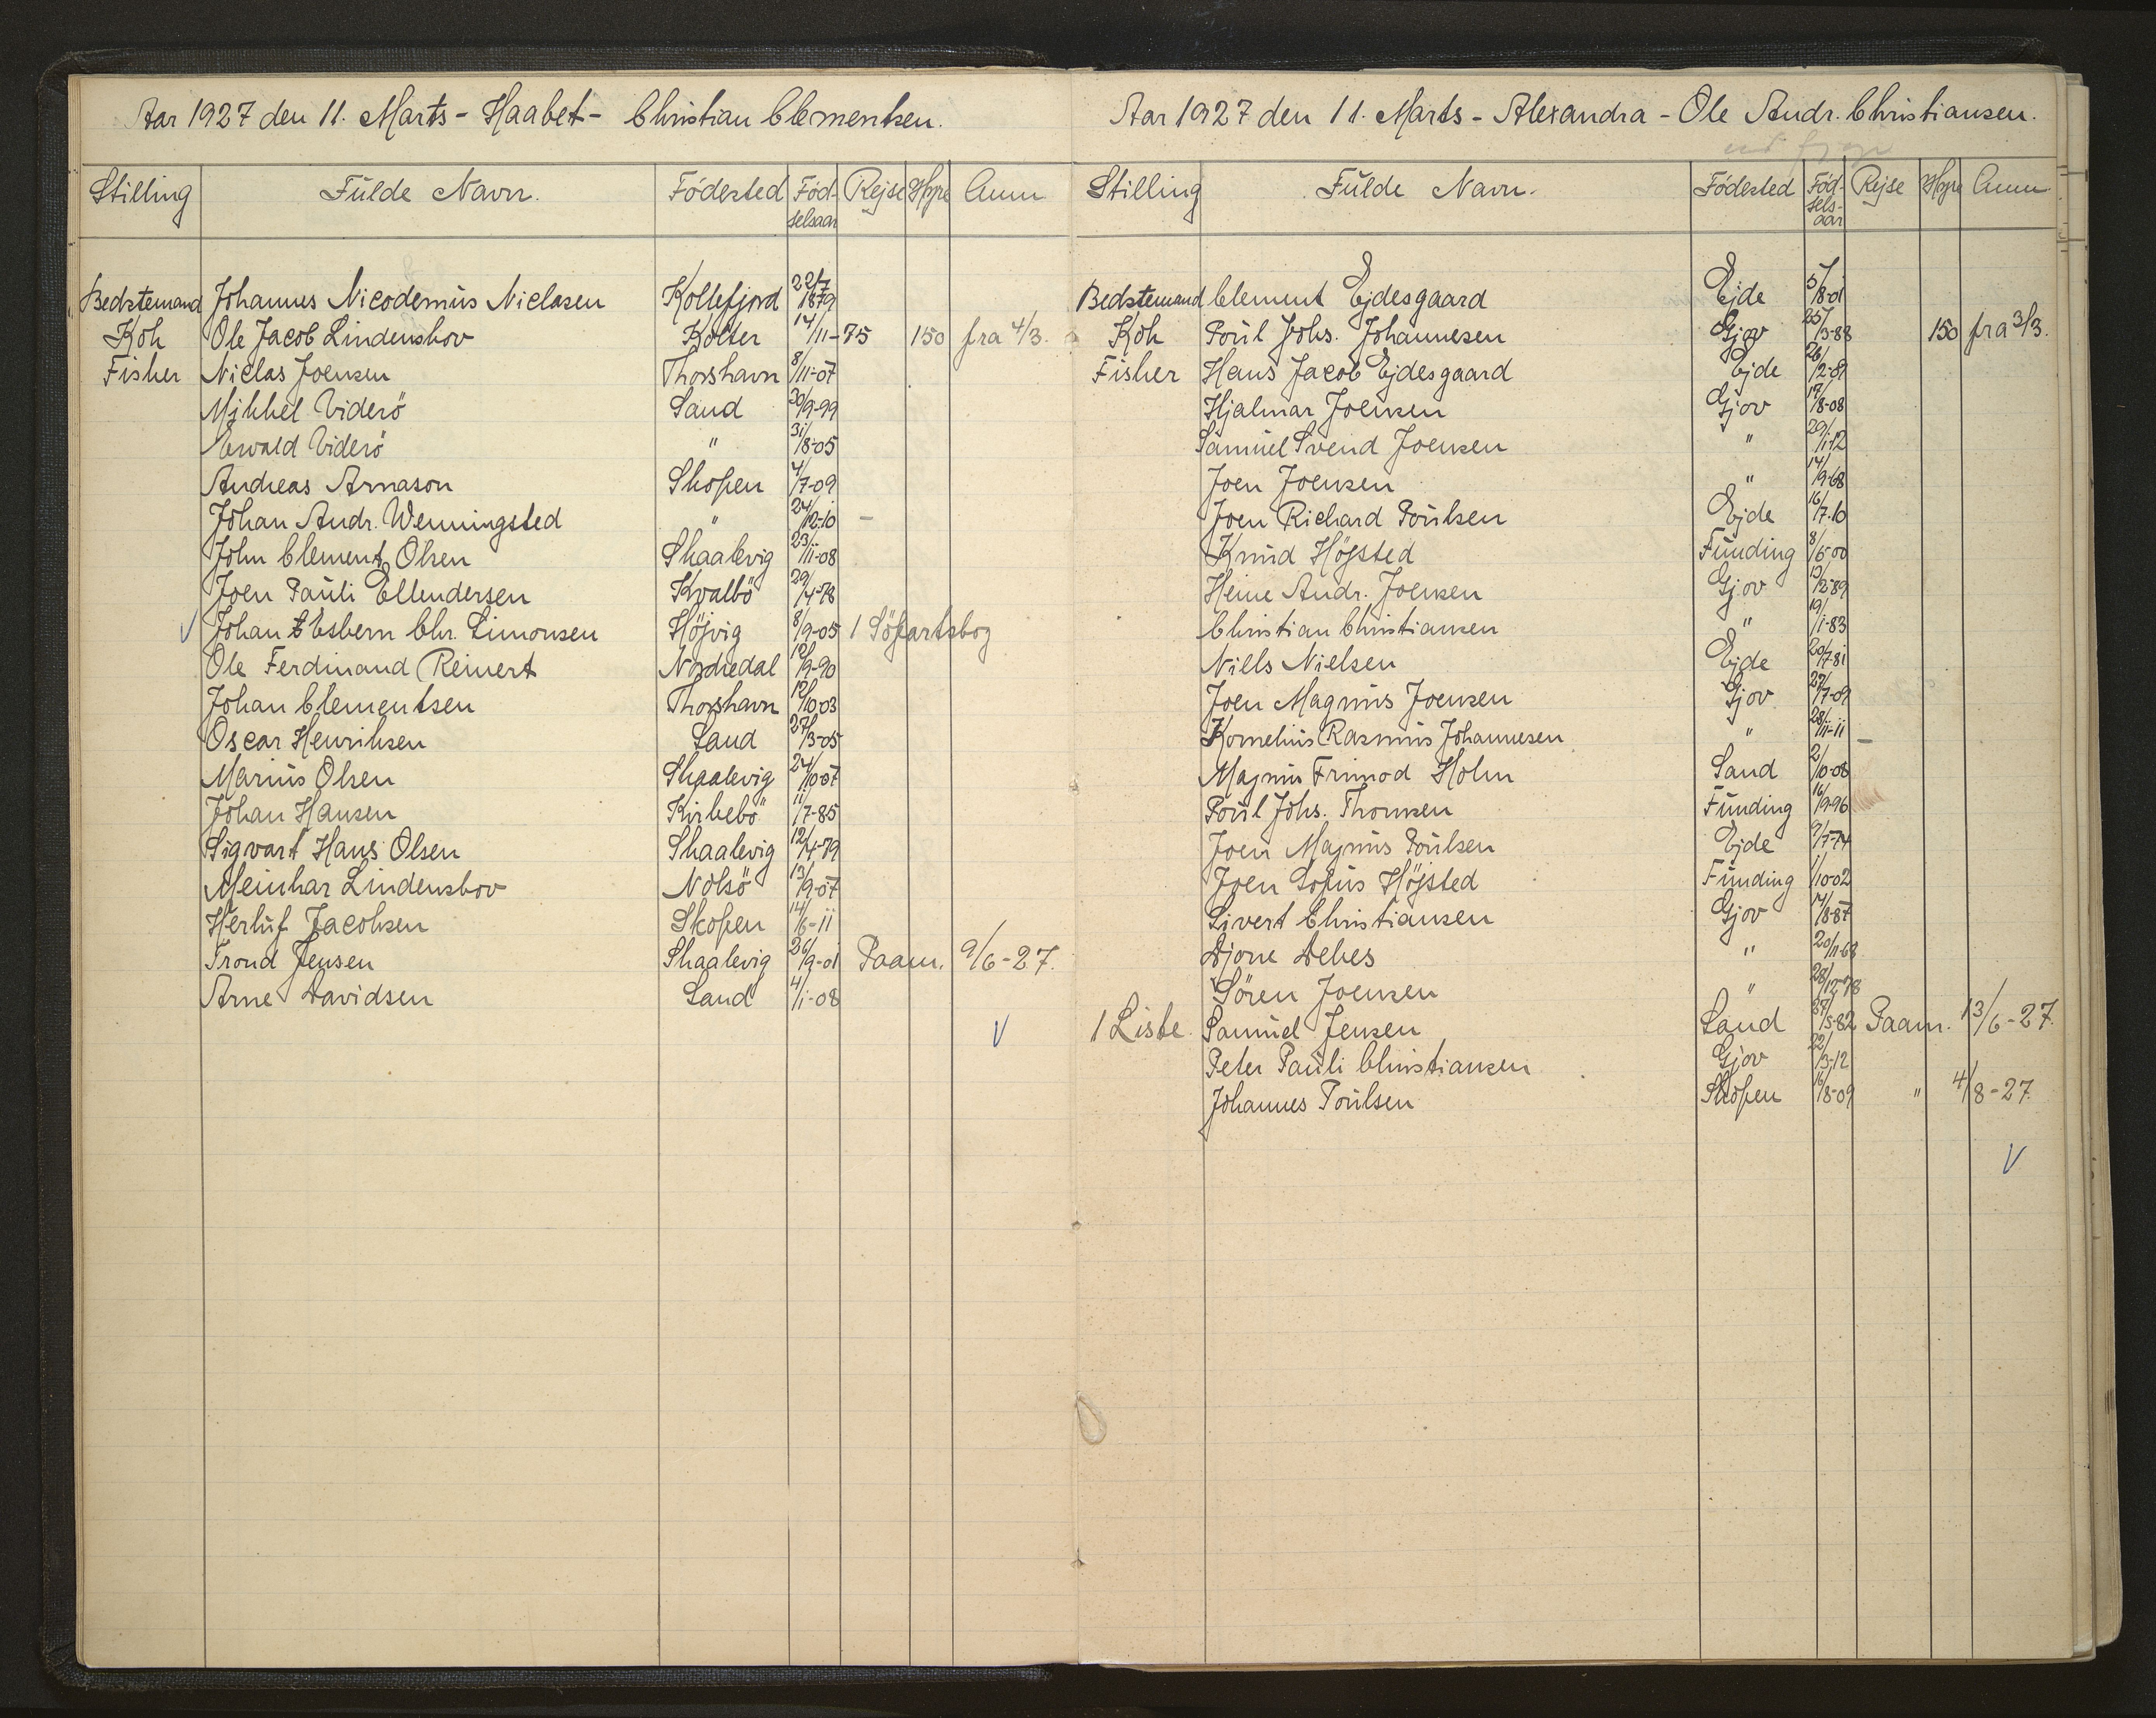 Aar 1927 den 11. Marts - Haabet - Christian Clementsen.
Stilling Fülde Navn. Födested Född-selsaar Rejse Hyre Anm
Bedstemand Johannes Nicodemüs Niclasen Kollefjord 22/7 1879
Kok Ole Jacob Lindenskov Kolter 14/11-75 150 fra 4/3.
Fisker Niclas Joensen Thorshavn 8/11-07
Mikkel Viderö Sand 30/9-99
Ewald Viderö " 31/8-05
Andreas Arnason Skopen 4/7-09
Johan Andr. Wenningsted " 24/12-10 -
John Clement Olsen Skaalevig 23/11-08
Joen Paüli Ellendersen Kvalbö 29/4-78
V Johan Esbern Chr. Simonsen Höjvig 8/9-05 1 Söfartsbog
Ole Ferdinand Reinert Nordredal 12/9-90
Johan Clementsen Thorshavn 12/10-03
Oscar Henriksen Sand 27/3-05
Mariüs Olsen Skaalevig 24/10-07
Johan Hansen Kirkebö 11/7-85
Sigvart Hans Olsen Skaalevig 12/4-79
Meinhar Lindenskov Nolsö 13/9-07
Herlüf Jacobsen Skopen 14/6-11
Trond Jensen Skaalevig 26/9-01 Paam. 9/6-27.
Arne Davidsen Sand 4/1-08
V
Aar 1927 den 11. Marts - Alexandra - Ole Andr. Christiansen.
Stilling Fülde Navn. Födested Föd-sels-aar Rejse Hyre Anm
Bedstemand Clement Ejdesgaard Ejde 5/8-01
Kok Poül Johs. Johannesen Gjov 25/3-88 150 fra 3/3.
Fisker Hans Jacob Ejdesgaard Ejde 26/2-89
Hjalmar Joensen Gjov 17/8-08
Samüel Svend Joensen " 29/1-12
Joen Joensen " 14/9-68
Joen Richard Poülsen Ejde 16/7-10
Knüd Höjsted Fünding 8/6-00
Heine Andr. Joensen Gjov 13/12-89
Christian Christiansen " 19/1-83
Nills Nielsen Ejde 20/7-81
Joen Magnüs Joensen Gjov 27/7-09
Korneliüs Rasmüs Johannesen " 28/11-11 -
Magnüs Frimod Holm Sand 2/10-08
Poül Johs. Thomsen Fünding 16/9-96
Joen Magnüs Poülsen Ejde 9/7-74
Joen Sofüs Höjsted Fünding 1/10-02
Sivert Christiansen Gjov 14/8-87
Djone Debes " 20/11-68
Sören Joensen " 28/12-78
1 Liste Samüel Jensen Sand 27/5-82 Paam. 13/6-27.
Peter Paüli Christiansen Gjov 22/3-12
Johannes Poülsen Skopen 16/8-09 " 4/8-27.
V